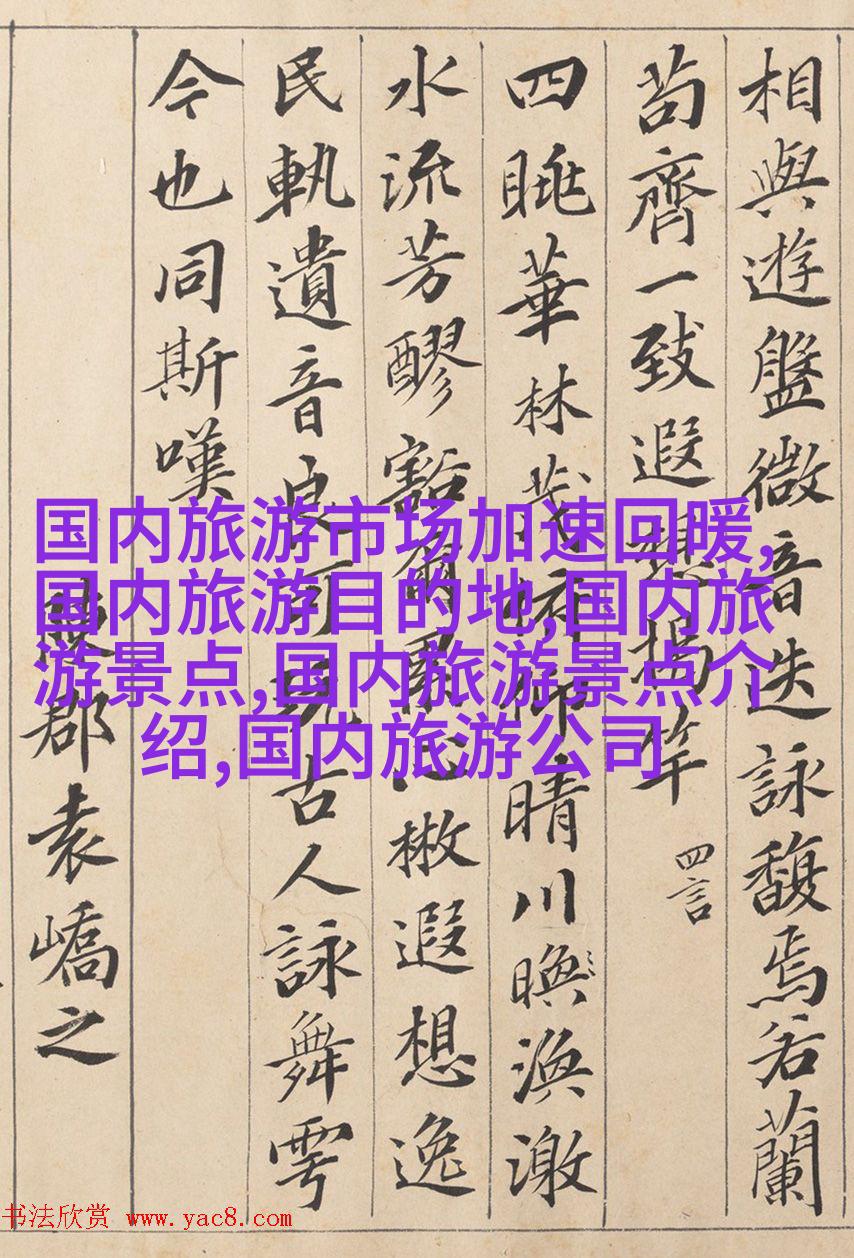 相與遊盤微音迭詠馥焉若蘭
苟齊一致遐想揭竿
四言
四眺華林茂俯仰晴川㬇渙激
水流芳醪豁爾累心遐想逸
民軌遺音良可玩古人詠舞雩
今也同斯嘆
郡袁嶠之
国内旅游市场加速回暖,
国内旅游目的地,国内旅
游景点,国内旅游景点介
绍,国内旅游公司
书法欣赏 www.yac8.com